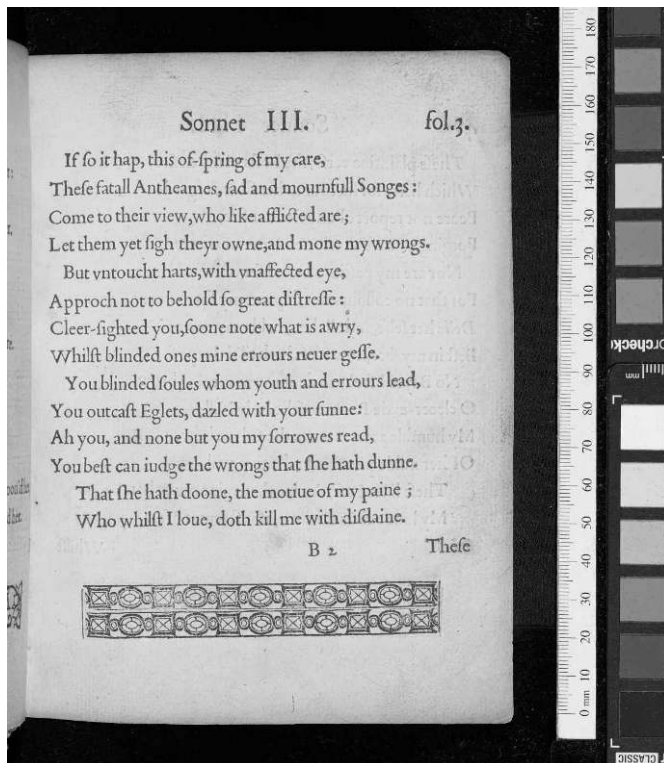 Sonnet III. fol.3.
If ſo it hap, this of-ſpring of my care,
Theſe fatall Antheames, ſad and mournfull Songes:
Come to their view, who like afflicted are;
Let them yet ſigh theyr owne, and mone my wrongs.
But vntoucht harts, with vnaffected eye,
Approch not to behold ſo great diſtreſſe:
Cleer-ſighted you, ſoone note what is awry,
Whilſt blinded ones mine errours neuer geſſe.
You blinded ſoules whom youth and errours lead,
You outcaſt Eglets, dazled with your ſunne:
Ah you, and none but you my ſorrowes read,
You beſt can iudge the wrongs that ſhe hath dunne.
That ſhe hath doone, the motiue of my paine;
Who whilſt I loue, doth kill me with diſdaine.
B 2 Theſe
180
170
160
150
140
130
120
110
100
90
80
70
60
50
40
30
20
10
0 mm
orchecke
mm
CLASSIC